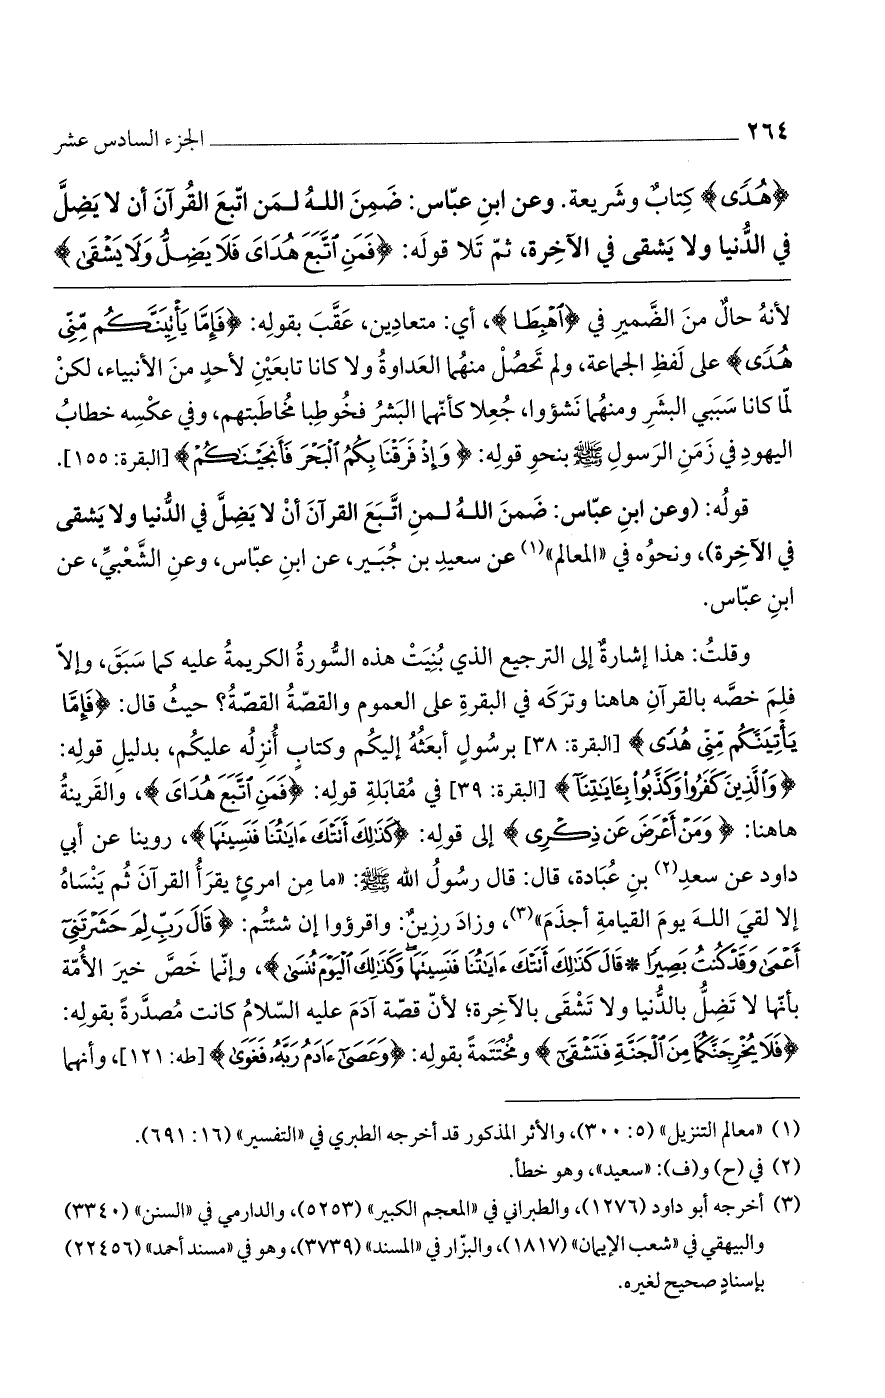 ٢٦٤ ـــــــــ الجزء السادس عشر
﴿هُدًى﴾ كِتابٌ وشَريعة. وعن ابنِ عبّاس: ضَمِنَ اللـهُ لـمَن اتّبعَ القُرآنَ أن لا يَضِلَّ
في الدُّنيا ولا يَشقى في الآخِرة، ثمّ تَلا قولَه: ﴿فَمَنِ ٱتَّبَعَ هُدَاىَ فَلَا يَضِلُّ وَلَا يَشْقَىٰ﴾
لأنهُ حالٌ منَ الضَّميرِ في ﴿ٱهْبِطَا﴾، أي: متعادِين، عَقَّبَ بقولِه: ﴿فَإِمَّا يَأْتِيَنَّكُم مِّنِّى
هُدًى﴾ على لَفظِ الجماعة، ولم تَحصُلْ منهُما العَداوةُ ولا كانا تابعَيْنِ لأحدٍ منَ الأنبياء، لكنْ
لمّا كانا سَبَبيِ البشَرِ ومنهُما نَشؤوا، جُعِلا كأنّهما البَشرُ فخُوطِبا مُخاطَبتهم، وفي عكْسِه خطابُ
اليهودِ في زَمَنِ الرَسولِ ﷺ بنحوِ قولِه: ﴿وَإِذْ فَرَقْنَا بِكُمُ ٱلْبَحْرَ فَأَنجَيْنَـٰكُمْ﴾ [البقرة: ١٥٥].
قولُه: (وعن ابنِ عبّاس: ضَمنَ اللـهُ لـمنِ اتَّبَعَ القرآنَ أنْ لا يَضِلَّ في الدُّنيا ولا يَشقى
في الآخِرة)، ونحوُه في «المعالم»(١) عن سعيدِ بن جُبَـير، عن ابنِ عبّاس، وعنِ الشَّعْبيِّ، عن
ابنِ عبّاس.
وقلتُ: هذا إشارةٌ إلى الترجيع الذي بُنِيَتْ هذه السُّورةُ الكريمةُ عليه كما سَبَقَ، وإلاّ
فلِمَ خصَّه بالقرآنِ هاهنا وترَكَه في البقرةِ على العموم والقصّةُ القصّةُ؟ حيثُ قال: ﴿فَإِمَّا
يَأْتِيَنَّكُم مِّنِّى هُدًى﴾ [البقرة: ٣٨] برسُولٍ أبعَثُهُ إليكُم وكتابٍ أُنزِلُه عليكُم، بدليلِ قولِه:
﴿وَٱلَّذِينَ كَفَرُوا۟ وَكَذَّبُوا۟ بِـَٔايَـٰتِنَآ﴾ [البقرة: ٣٩] في مُقابَلةِ قولِه: ﴿فَمَنِ ٱتَّبَعَ هُدَاىَ﴾، والقَرينةُ
هاهنا: ﴿وَمَنْ أَعْرَضَ عَن ذِكْرِى﴾ إلى قولِه: ﴿كَذَٰلِكَ أَتَتْكَ ءَايَـٰتُنَا فَنَسِينَهَا﴾، روينا عن أبي
داود عن سعدِ(٢) بنِ عُبَادة، قال: قال رسُولُ الله ﷺ: «ما مِن امرئٍ يقرَأُ القرآنَ ثم يَنْساهُ
إلا لقيَ اللـهَ يومَ القيامةِ أجذَمَ»(٣)، وزادَ رزِينٌ: واقرؤوا إن شئتُم: ﴿قَالَ رَبِّ لِمَ حَشَرْتَنِىٓ
أَعْمَىٰ وَقَدْ كُنتُ بَصِيرًا * قَالَ كَذَٰلِكَ أَتَتْكَ ءَايَـٰتُنَا فَنَسِينَهَا ۖ وَكَذَٰلِكَ ٱلْيَوْمَ تُنسَىٰ﴾، وإنّما خَصَّ خيرَ الأُمّة
بأنّها لا تَضِلُّ بالدُّنيا ولا تَشْقَى بالآخِرة؛ لأنّ قصّة آدَمَ عليه السّلامُ كانت مُصدَّرةً بقولِه:
﴿فَلَا يُخْرِجَنَّكُمَا مِنَ ٱلْجَنَّةِ فَتَشْقَىٰٓ﴾ ومُخْتَتمةً بقولِه: ﴿وَعَصَىٰٓ ءَادَمُ رَبَّهُۥ فَغَوَىٰ﴾ [طه: ١٢١]، وأنهما
(١) «معالم التنزيل» (٥: ٣٠٠)، والأثر المذكور قد أخرجه الطبري في «التفسير» (١٦: ٦٩١).
(٢) في (ح) و(ف): «سعيد»، وهو خطأ.
(٣) أخرجه أبو داود (١٢٧٦)، والطبراني في «المعجم الكبير» (٥٢٥٣)، والدارمي في «السنن» (٣٣٤٠)
والبيهقي في «شعب الإيمان» (١٨١٧)، والبزّار في «المسند» (٣٧٣٩)، وهو في «مسند أحمد» (٢٢٤٥٦)
بإسنادٍ صحيح لغيره.